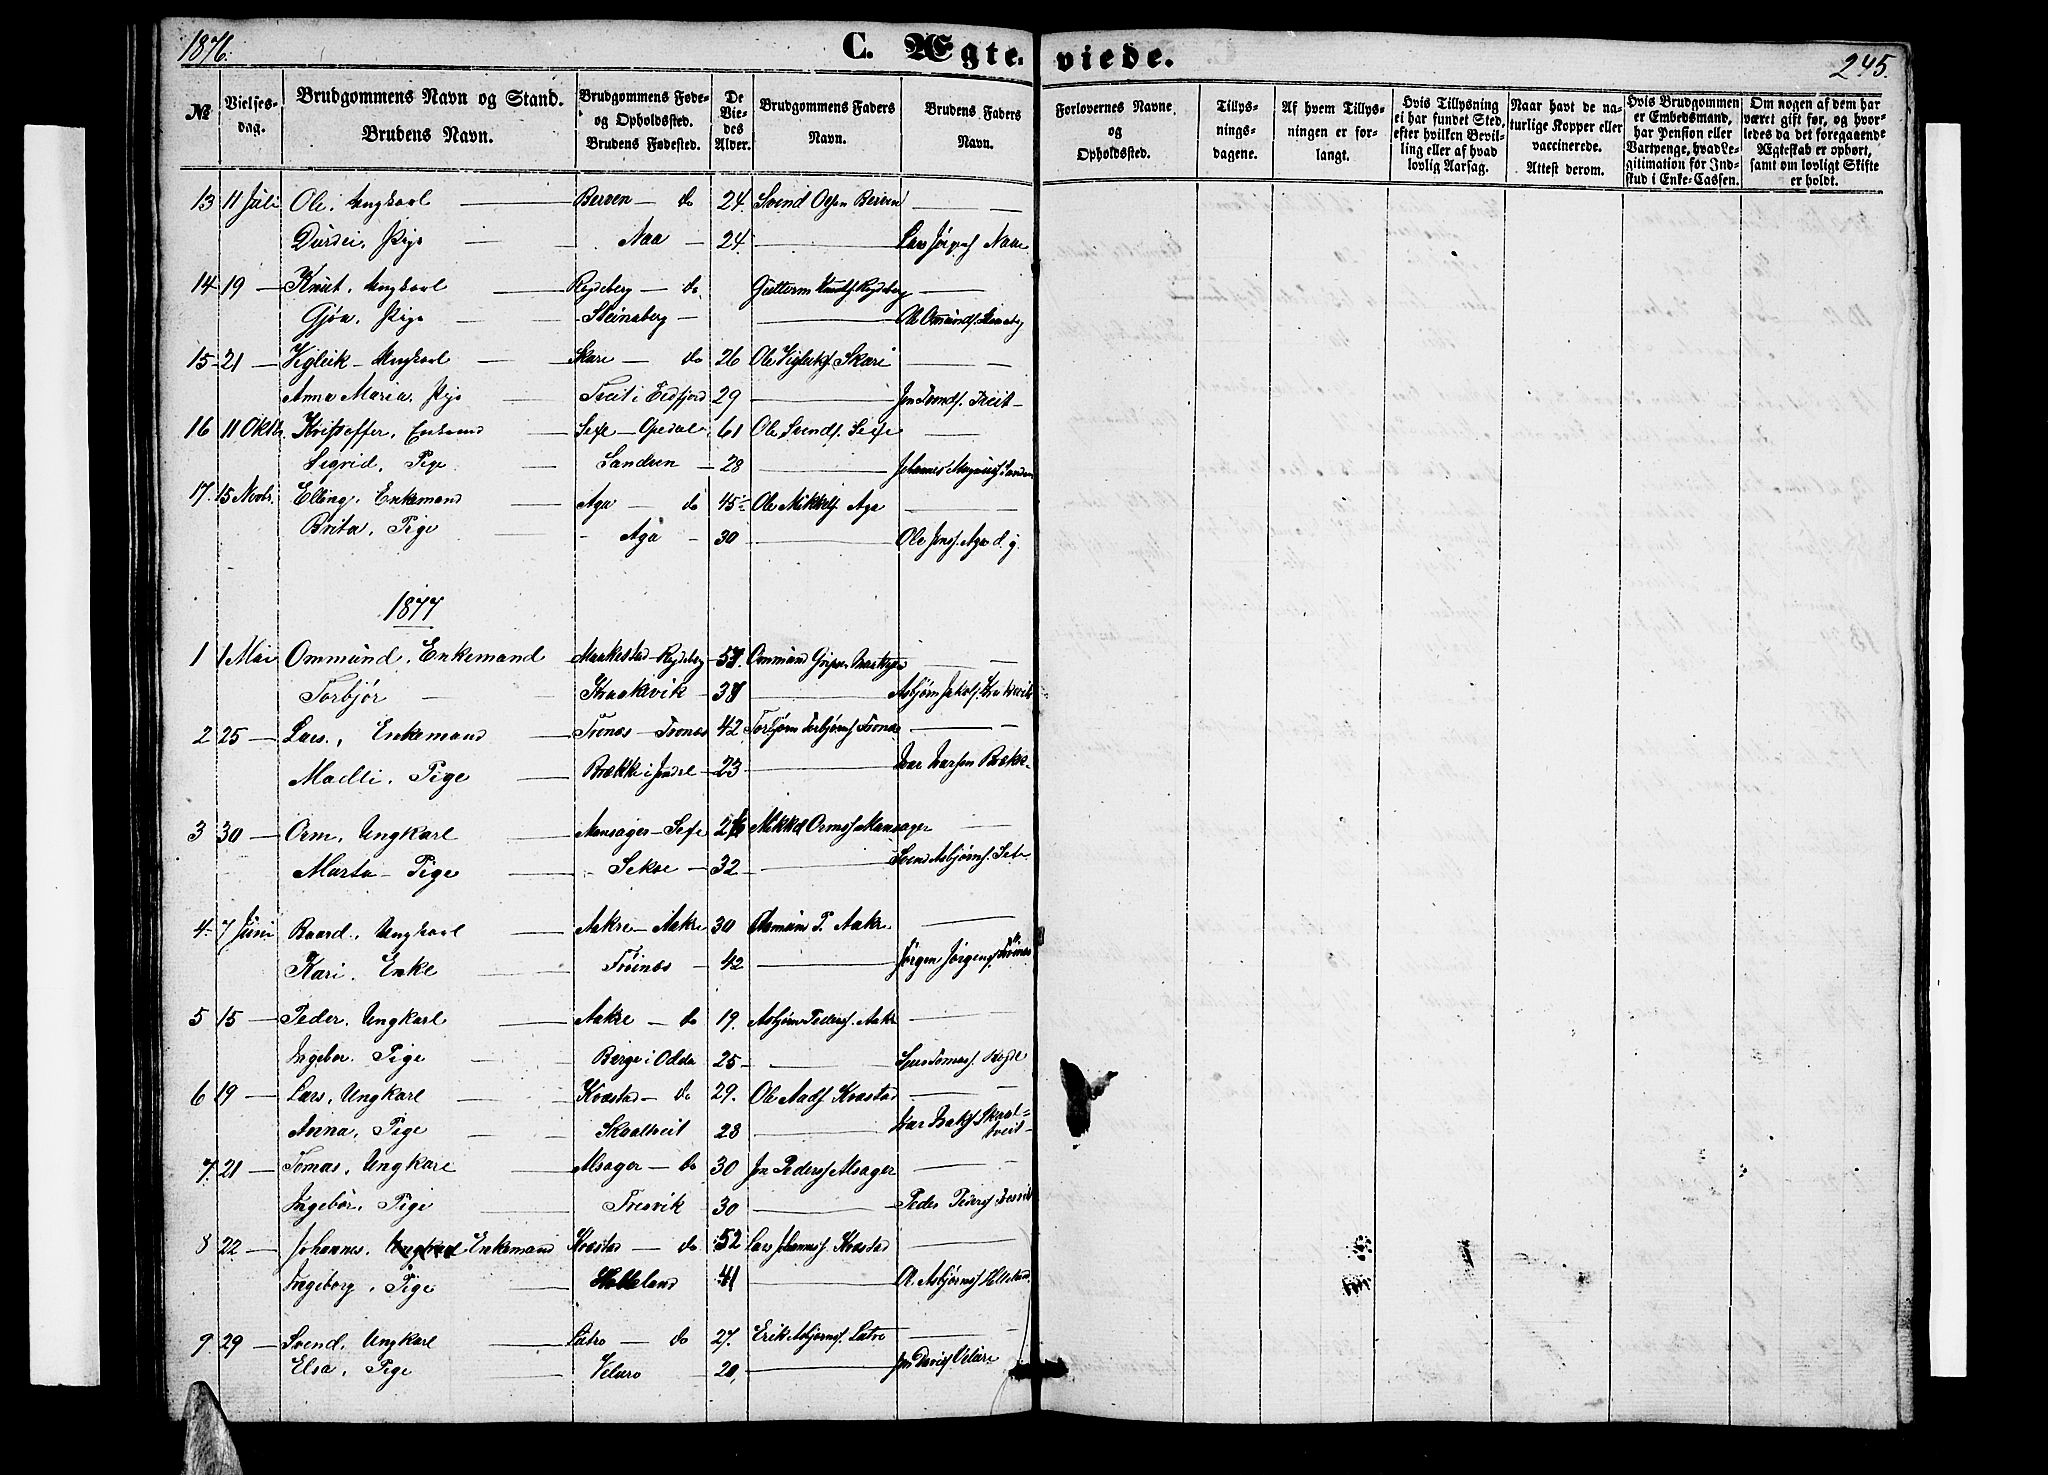 1876.
C. Ægte=
viede.
245.
№
Vielses-
dag.
Brudgommens Navn og Stand.
Brudens Navn.
Brudgommens Føde-
og Opholdssted.
Brudens Fødested.
De
Vie-
des
Alder.
Brudgommens Faders
Navn.
Brudens Faders
Navn.
Forlovernes Navne
og
Opholdssted.
Tillys-
nings-
dagene.
Af hvem Tillys-
ningen er for-
langt.
Hvis Tillysning
ei har fundet Sted,
efter hvilken Bevil-
ling eller af hvad
lovlig Aarsag.
Naar havt de na-
turlige Kopper eller
vaccinerede.
Attest derom.
Hvis Brudgommen
er Embedsmand,
har Pension eller
Vartpenge, hvad Le-
gitimation for Ind-
skud i Enke-Cassen.
Om nogen af dem har
været gift før, og hvor-
ledes da det foregaaende
Ægteskab er ophørt,
samt om lovligt Skifte
er holdt.
13 11 Juli Ole, Ungkarl — Berven — do 24. Svend Olsen Berven —
Durdei, Pige — Naa — 24 — Lars Naa
14 19 — Knut, Ungkarl — Reydeberg — do Guttorm Knuts. Reydeberg —
Gjøa, Pige — Steinaberg — Ole Omunds. Steinaberg
15 21 — Vigleik Ungkarl — Skare — do 26 Ole Vigleiks. Skare —
Anna Maria, Pige — Treit i Eidfjord 29 — Jon Tronds. Treit
16 11 Oktbr. Kristoffer, Enkemand — Sexe — Opedal 61 Ole Svends. Sexe —
Sigrid, Pige — Sandven — 28 — Johannes Sandven
17. 15 Novbr. Elling, Enkemand — Aga — do 45 Ole Mikkels. Aga —
Brita, Pige — Aga — 30 — Ole Jons. Aga d. y.
1877
1 1 Mai Ommund, Enkemand Maakestad — Reydeberg — 57. Ommund —
Torbjør — Kraakevik — 37 — Asbjørn Jakobs. Kraakevik
2 25 — Lars, Enkemand — Trones — Trones 42 Torbjørn Torbjørns. Trones —
Madli, Pige — Brække i Jondal — 23 — Ivar Ivarsen Brække
3 30 — Orm, Ungkarl — Mansager — Sexe 26 Mikkel Orms. Mansager —
Marta — Pige — Sekse — 32 — Svend Asbjørns. Sekse
4. 7 Juni Baard, Ungkarl — Aakre — Aakre 30 P. Aakre —
Kari, Enke — Trones — 42 — Jørgen Jørgens. Trones
5 15 — Peder, Ungkarl — Aakre — do 19. Asbjørn Peders. Aakre —
Ingebor, Pige — Berge i Odda 25 — Tomas.
6 19 — Lars, Ungkarl — Kvæstad — do 29. Ole Aads. Kvæstad —
Anna, Pige — Skaaltveit 28 — Ivar Skaal=
tveit
7. 21 — Tomas, Ungkarl — Alsager — do 30 Jon Peders. Alsager —
Ingebor, Pige — Tresvik — 30 — Peder Peders. Tresvik
8 22 — Johannes, Enkemand Kvæstad — do 52 Lars Johanness. Kvæstad —
Ingeborg, Pige — Helleland 41 — Ol. Asbjørns. Helleland
9 29 — Svend, Ungkarl — Lotre — do 27. Erik Asbjørns. Lotre —
Elsa, Pige — Velure 20, — Jon Davids. Velure